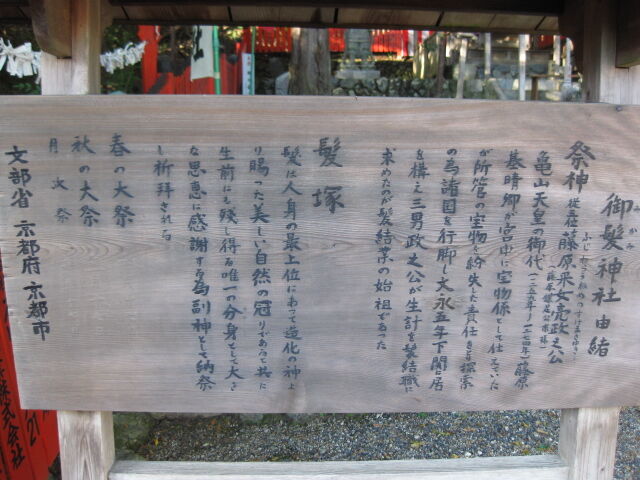 御髪神社由緒
みかみ
祭神 従五位 藤原采女亮政之公
ふじ
亀山天皇の御代
(一二五九年〜一二七四年)藤原
基晴卿が宮中に宝物係として仕えていた
が所管の宝物を紛失した責任をとり探索
の為諸国を行脚し大永五年下関に居
を構え三男政之公が生計を髪結職に
求めたのが髪結業の始祖であった
髪塚
髪は人身の最上位にあって造化の神よ
り賜った美しい自然の冠りであると共に
生前にも残し得る唯一の分身として大き
な恩恵に感謝する為副神として納祭
し祈拝される
春の大祭
秋の大祭
月次祭
文部省 京都府 京都市
株式会社
21